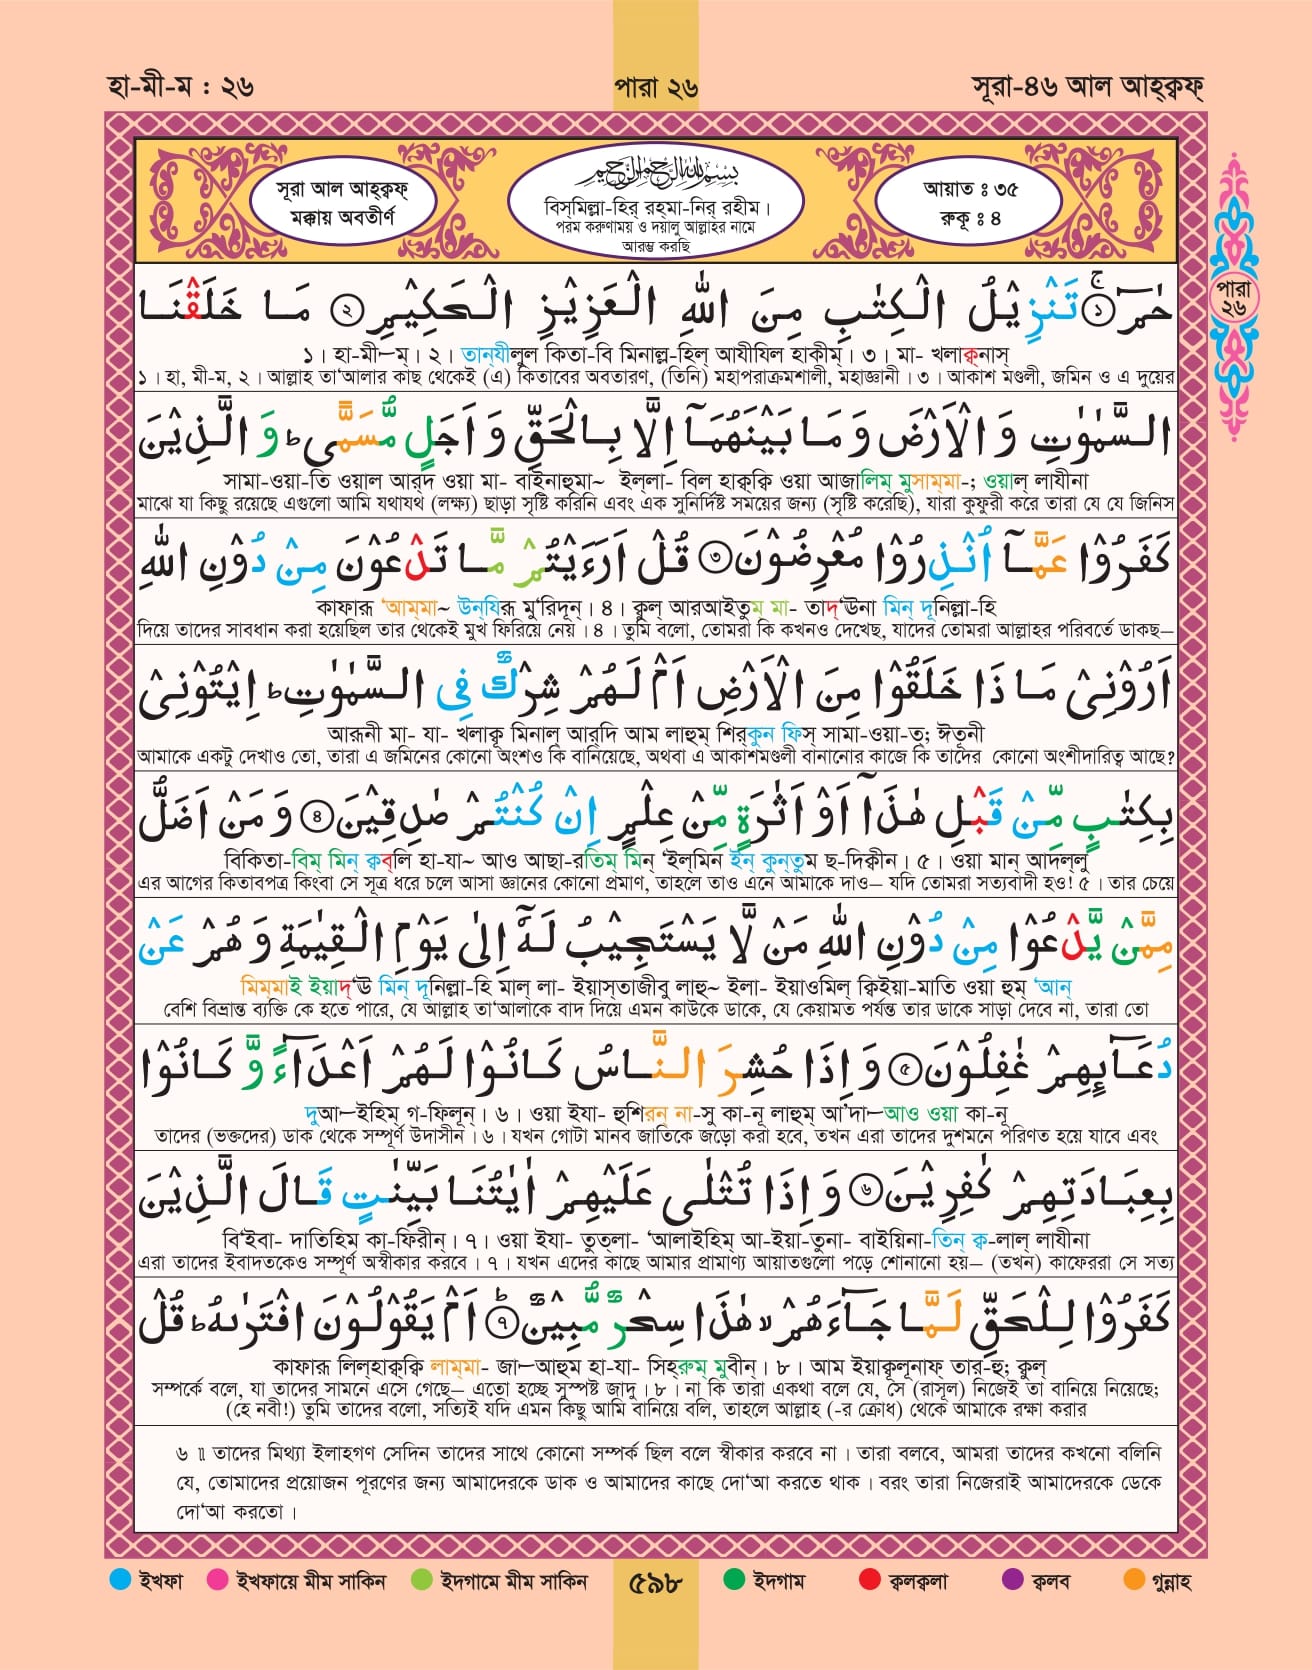 হা-মী-ম : ২৬
পারা ২৬
সূরা-৪৬ আল আহ্ক্বফ্
সূরা আল আহ্ক্বফ্
মক্কায় অবতীর্ণ
بِسْمِ اللهِ الرَّحْمٰنِ الرَّحِيْمِ
বিস্‌মিল্লা-হির্ রহ্‌মা-নির্ রহীম।
পরম করুণাময় ও দয়ালু আল্লাহর নামে
আরম্ভ করছি
আয়াত ঃ ৩৫
রুকূ ঃ ৪
পারা
২৬
حٰمٓ ۚ﴿۱﴾ تَنْزِيْلُ الْكِتٰبِ مِنَ اللهِ الْعَزِيْزِ الْحَكِيْمِ ﴿۲﴾ مَا خَلَقْنَا
১। হা-মী—ম্। ২। তান্‌যীলুল কিতা-বি মিনাল্ল-হিল্ আযীযিল হাকীম্। ৩। মা- খলাক্বনাস্
১। হা, মী-ম, ২। আল্লাহ তা‘আলার কাছ থেকেই (এ) কিতাবের অবতারণ, (তিনি) মহাপরাক্রমশালী, মহাজ্ঞানী। ৩। আকাশ মণ্ডলী, জমিন ও এ দুয়ের
السَّمٰوٰتِ وَ الْاَرْضَ وَ مَا بَيْنَهُمَآ اِلَّا بِالْحَقِّ وَ اَجَلٍ مُّسَمًّى ؕ وَ الَّذِيْنَ
সামা-ওয়া-তি ওয়াল আর্‌দ ওয়া মা- বাইনাহুমা~ ইল্‌লা- বিল হাক্ব্‌ক্বি ওয়া আজালিম্ মুসাম্‌মা-; ওয়াল্ লাযীনা
মাঝে যা কিছু রয়েছে এগুলো আমি যথাযথ (লক্ষ্য) ছাড়া সৃষ্টি করিনি এবং এক সুনির্দিষ্ট সময়ের জন্য (সৃষ্টি করেছি), যারা কুফুরী করে তারা যে যে জিনিস
كَفَرُوْا عَمَّآ اُنْذِرُوْا مُعْرِضُوْنَ ﴿۳﴾ قُلْ اَرَءَيْتُمْ مَّا تَدْعُوْنَ مِنْ دُوْنِ اللهِ
কাফারূ ‘আম্‌মা~ উন্‌যিরূ মু‘রিদূন্। ৪। ক্বুল্ আরআইতুম মা- তাদ্‘ঊনা মিন্ দূনিল্লা-হি
দিয়ে তাদের সাবধান করা হয়েছিল তার থেকেই মুখ ফিরিয়ে নেয়। ৪। তুমি বলো, তোমরা কি কখনও দেখেছ, যাদের তোমরা আল্লাহর পরিবর্তে ডাকছ—
اَرُوْنِيْ مَا ذَا خَلَقُوْا مِنَ الْاَرْضِ اَمْ لَهُمْ شِرْكٌ فِي السَّمٰوٰتِ ؕ اِيْتُوْنِيْ
আরূনী মা- যা- খলাক্বূ মিনাল্ আর্‌দি আম লাহুম্ শির্‌কুন ফিস্ সামা-ওয়া-ত্; ঈতূনী
আমাকে একটু দেখাও তো, তারা এ জমিনের কোনো অংশও কি বানিয়েছে, অথবা এ আকাশমণ্ডলী বানানোর কাজে কি তাদের কোনো অংশীদারিত্ব আছে?
بِكِتٰبٍ مِّنْ قَبْلِ هٰذَآ اَوْ اَثٰرَةٍ مِّنْ عِلْمٍ اِنْ كُنْتُمْ صٰدِقِيْنَ ﴿۴﴾ وَ مَنْ اَضَلُّ
বিকিতা-বিম্ মিন্ ক্বব্‌লি হা-যা~ আও আছা-রতিম্ মিন্ ‘ইল্‌মিন ইন্ কুন্‌তুম ছ-দিক্বীন। ৫। ওয়া মান্ আদল্‌লু
এর আগের কিতাবপত্র কিংবা সে সূত্র ধরে চলে আসা জ্ঞানের কোনো প্রমাণ, তাহলে তাও এনে আমাকে দাও— যদি তোমরা সত্যবাদী হও! ৫। তার চেয়ে
مِمَّنْ يَّدْعُوْا مِنْ دُوْنِ اللهِ مَنْ لَّا يَسْتَجِيْبُ لَهٗٓ اِلٰى يَوْمِ الْقِيٰمَةِ وَ هُمْ عَنْ
মিম্‌মাই ইয়াদ্‘ঊ মিন্ দূনিল্লা-হি মাল্ লা- ইয়াস্‌তাজীবু লাহূ~ ইলা- ইয়াওমিল্ ক্বিইয়া-মাতি ওয়া হুম্ ‘আন্
বেশি বিভ্রান্ত ব্যক্তি কে হতে পারে, যে আল্লাহ তা‘আলাকে বাদ দিয়ে এমন কাউকে ডাকে, যে কেয়ামত পর্যন্ত তার ডাকে সাড়া দেবে না, তারা তো
دُعَآىِٕهِمْ غٰفِلُوْنَ ﴿۵﴾ وَ اِذَا حُشِرَ النَّاسُ كَانُوْا لَهُمْ اَعْدَآءً وَّ كَانُوْا
দুআ—ইহিম্ গ-ফিলূন্। ৬। ওয়া ইযা- হুশিরন্ না-সু কা-নূ লাহুম্ আ‘দা—আও ওয়া কা-নূ
তাদের (ভক্তদের) ডাক থেকে সম্পূর্ণ উদাসীন। ৬। যখন গোটা মানব জাতিকে জড়ো করা হবে, তখন এরা তাদের দুশমনে পরিণত হয়ে যাবে এবং
بِعِبَادَتِهِمْ كٰفِرِيْنَ ﴿۶﴾ وَ اِذَا تُتْلٰى عَلَيْهِمْ اٰيٰتُنَا بَيِّنٰتٍ قَالَ الَّذِيْنَ
বি‘ইবা- দাতিহিম কা-ফিরীন্। ৭। ওয়া ইযা- তুত্‌লা- ‘আলাইহিম্ আ-ইয়া-তুনা- বাইয়িনা-তিন্ ক্ব-লাল্ লাযীনা
এরা তাদের ইবাদতকেও সম্পূর্ণ অস্বীকার করবে। ৭। যখন এদের কাছে আমার প্রামাণ্য আয়াতগুলো পড়ে শোনানো হয়— (তখন) কাফেররা সে সত্য
كَفَرُوْا لِلْحَقِّ لَمَّا جَآءَهُمْ ۙ هٰذَا سِحْرٌ مُّبِيْنٌ ؕ﴿۷﴾ اَمْ يَقُوْلُوْنَ افْتَرٰىهُ ؕ قُلْ
কাফারূ লিল্‌হাক্ব্‌ক্বি লাম্‌মা- জা—আহুম হা-যা- সিহ্‌রুম্ মুবীন্। ৮। আম ইয়াক্বূলূনাফ্ তার-হু; ক্বুল্
সম্পর্কে বলে, যা তাদের সামনে এসে গেছে— এতো হচ্ছে সুস্পষ্ট জাদু। ৮। না কি তারা একথা বলে যে, সে (রাসূল) নিজেই তা বানিয়ে নিয়েছে;
(হে নবী!) তুমি তাদের বলো, সত্যিই যদি এমন কিছু আমি বানিয়ে বলি, তাহলে আল্লাহ (-র ক্রোধ) থেকে আমাকে রক্ষা করার
৬ ॥ তাদের মিথ্যা ইলাহগণ সেদিন তাদের সাথে কোনো সম্পর্ক ছিল বলে স্বীকার করবে না। তারা বলবে, আমরা তাদের কখনো বলিনি
যে, তোমাদের প্রয়োজন পূরণের জন্য আমাদেরকে ডাক ও আমাদের কাছে দো‘আ করতে থাক। বরং তারা নিজেরাই আমাদেরকে ডেকে
দো‘আ করতো।
ইখফা ইখফায়ে মীম সাকিন ইদগামে মীম সাকিন ৫৯৮ ইদগাম ক্বলক্বলা ক্বলব গুন্নাহ